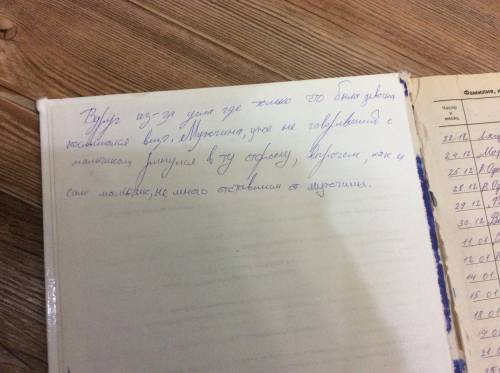 Вдруг из-за угла где только что была девочка
послышался визг. Мужчина, уже не говоривший с
мальчиком ринулся в ту сторону, впрочем, как и
сам мальчик, не много отставшим от мужчины.
Фамилия, и
Число
и
месяц
22.12
24.12
25.12
28.12
29.12
30.12
11.01
13.01
14.01
15.01
18.01
19.01
21.01